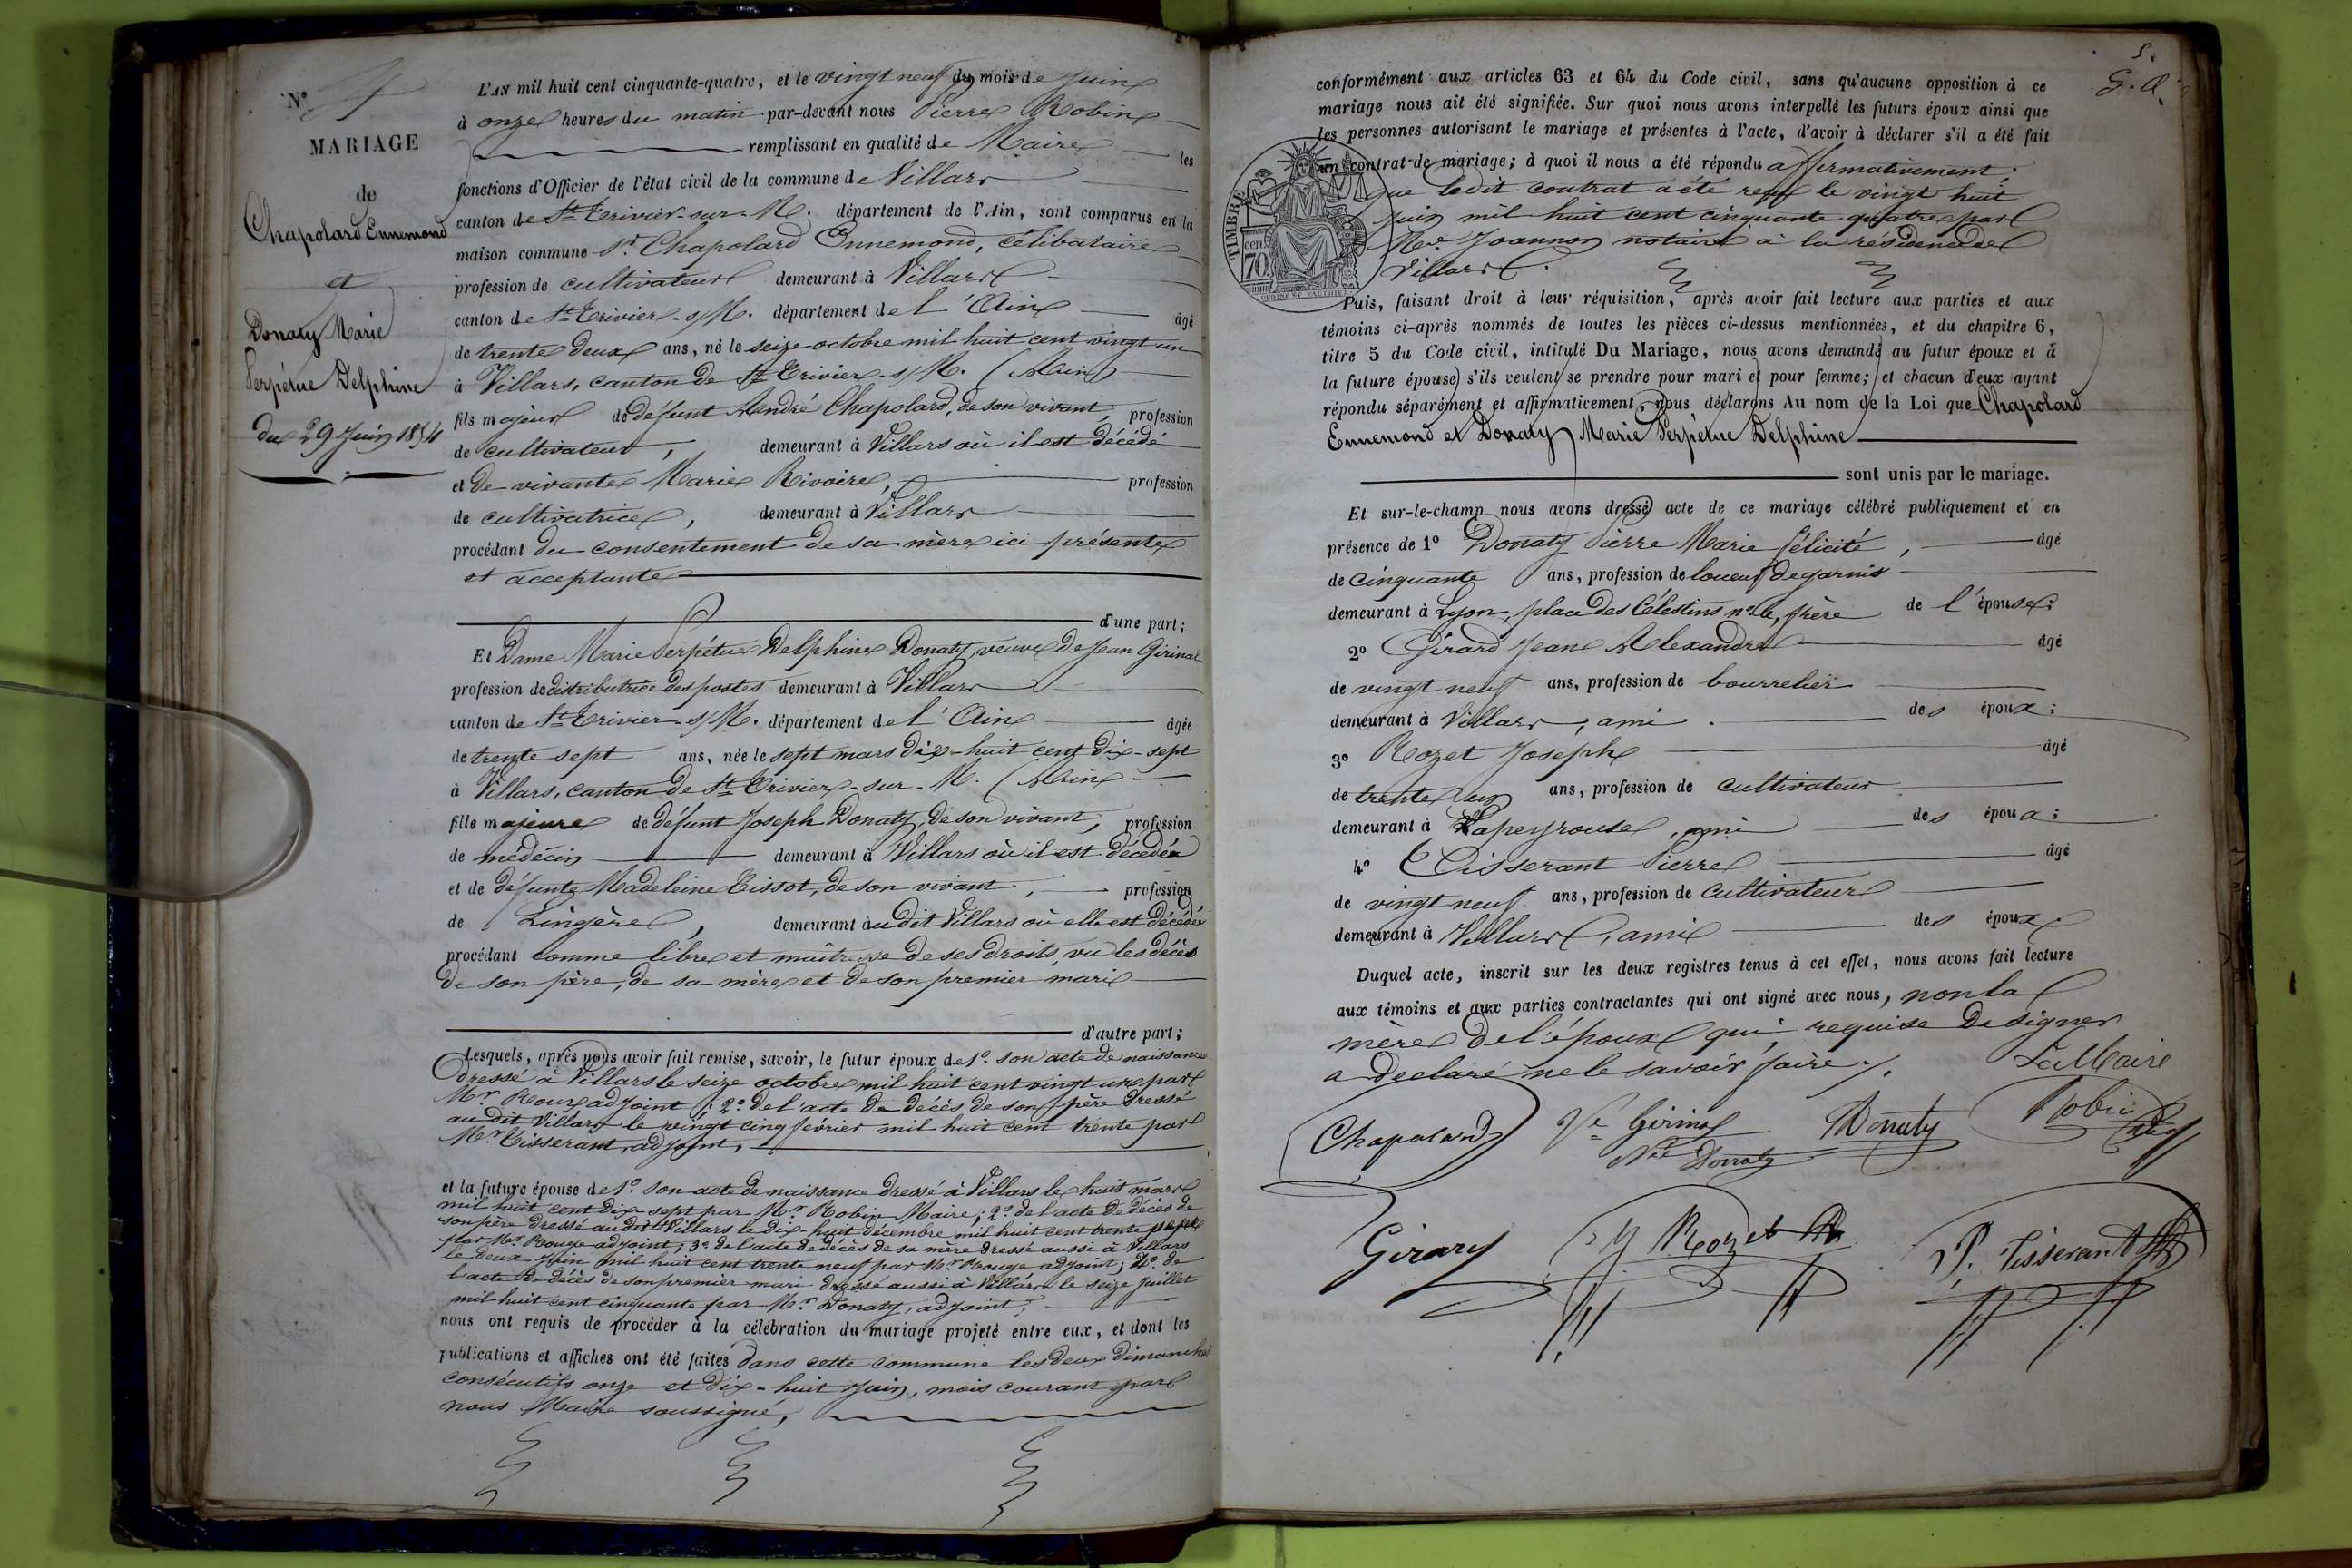 N° 4
MARIAGE
de
Chapolard Ennemond
et
Donaty Marie
Perpétue Delphine
du 29 Juin 1854
L'AN mil huit cent cinquante-quatre, et le vingt neuf du mois de Juin
à onze heures du matin par-devant nous Pierre Robin
remplissant en qualité de Maire les
fonctions d'Officier de l'état civil de la commune de Villars
canton de St Trivier-sur-M. département de l'Ain, sont comparus en la
maison commune Sr Chapolard Ennemond, célibataire
profession de cultivateur demeurant à Villars
canton de St Trivier-s/M. département de l'Ain âgé
de trente deux ans, né le seize octobre mil huit cent vingt un
à Villars, canton de St Trivier-s/M. (Ain)
fils majeur de défunt André Chapolard, de son vivant, profession
de cultivateur, demeurant à Villars où il est décédé
et de vivante Marie Rivoire, profession
de cultivatrice, demeurant à Villars
procédant du consentement de sa mère ici présente
et acceptante
d'une part;
Et Dame Marie Perpétue Delphine Donaty, veuve de Jean Girinal
profession de distributrice des postes demeurant à Villars
canton de St Trivier-s/M. département de l'Ain âgée
de trente sept ans, née le sept mars dix-huit cent dix-sept
à Villars, canton de St Trivier-sur-M. (Ain)
fille majeure de défunt Joseph Donaty, de son vivant, profession
de médecin demeurant à Villars où il est décédé
et de défunte Madeleine Tissot, de son vivant, profession
de Lingère, demeurant audit Villars où elle est décédée
procédant comme libre et maîtresse de ses droits, vu les décès
de son père, de sa mère et de son premier mari
d'autre part;
Lesquels, après nous avoir fait remise, savoir, le futur époux de 1° son acte de naissance
dressé à Villars le seize octobre mil huit cent vingt un par
Mr Rouge adjoint; 2° de l'acte de décès de son père dressé
audit Villars le vingt cinq février mil huit cent trente par
Mr Tisserant, adjoint,
et la future épouse de 1° son acte de naissance dressé à Villars le huit mars
mil huit cent dix-sept par Mr Robin Maire; 2° de l'acte de décès de
son père dressé audit Villars le dix-huit décembre mil huit cent trente
par Mr Rouge adjoint; 3° de l'acte de décès de sa mère dressé aussi à Villars
le deux Juin mil huit cent trente neuf par Mr Rouge adjoint; 4° de
l'acte de décès de son premier mari dressé aussi à Villars le seize Juillet
mil huit cent cinquante par Mr Donaty, adjoint;
nous ont requis de procéder à la célébration du mariage projeté entre eux, et dont les
publications et affiches ont été faites dans cette commune les deux dimanches
consécutifs onze et dix-huit Juin, mois courant par
nous Maire soussigné,
5.
conformément aux articles 63 et 64 du Code civil, sans qu'aucune opposition à ce
mariage nous ait été signifiée. Sur quoi nous avons interpellé les futurs époux ainsi que
les personnes autorisant le mariage et présentes à l'acte, d'avoir à déclarer s'il a été fait
un contrat de mariage; à quoi il nous a été répondu affirmativement.
que ledit contrat a été reçu le vingt huit
juin mil huit cent cinquante quatre par
Me Joannon notaire à la résidence de
Villars.
TIMBRE
cen
70
Puis, faisant droit à leur réquisition, après avoir fait lecture aux parties et aux
témoins ci-après nommés de toutes les pièces ci-dessus mentionnées, et du chapitre 6,
titre 5 du Code civil, intitulé Du Mariage, nous avons demandé au futur époux et à
la future épouse s'ils veulent se prendre pour mari et pour femme; et chacun d'eux ayant
répondu séparément et affirmativement, nous déclarons Au nom de la Loi que Chapolard
Ennemond et Donaty Marie Perpétue Delphine
sont unis par le mariage.
Et sur-le-champ nous avons dressé acte de ce mariage célébré publiquement et en
présence de 1° Donaty Pierre Marie Félicité, âgé
de cinquante ans, profession de loueur de garnis
demeurant à Lyon, place des Célestins n°, frère de l'épouse;
2° Girard Jean Alexandre âgé
de vingt neuf ans, profession de bourrelier
demeurant à Villars, ami des époux;
3° Rozet Joseph âgé
de trente un ans, profession de cultivateur
demeurant à Lapeyrouse, ami des époux;
4° Tisserant Pierre âgé
de vingt neuf ans, profession de cultivateur
demeurant à Villars, ami des époux
Duquel acte, inscrit sur les deux registres tenus à cet effet, nous avons fait lecture
aux témoins et aux parties contractantes qui ont signé avec nous, non la
mère de l'époux qui, requise de signer
a déclaré ne le savoir faire.
Le Maire
Chapolard Ve Girinal Donaty Robin
Née Donaty
Girard J Rozet P. Tisserant